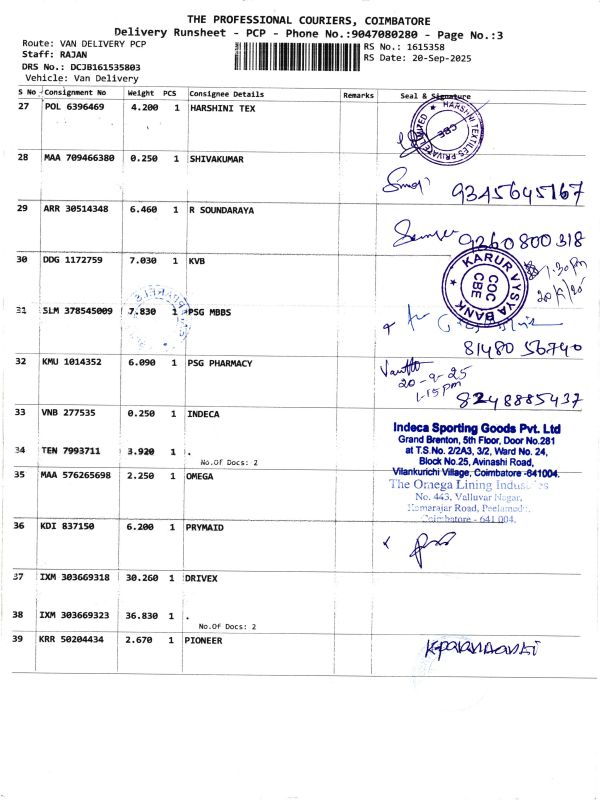 THE PROFESSIONAL COURIERS, COIMBATORE
Delivery Runsheet - PCP - Phone No.:9047080280 - Page No.:3
Route: VAN DELIVERY PCP
RS No.: 1615358
Staff: RAJAN
RS Date: 20-Sep-2025
DRS No.: DCJB161535803
Vehicle: Van Delivery
S No Consignment No Weight PCS Consignee Details Remarks Seal & Signature
27 POL 6396469 4.200 1 HARSHINI TEX
HARSHINI TEXTILES PRIVATE LIMITED
CBE
28 MAA 709466380 0.250 1 SHIVAKUMAR
9345645167
29 ARR 30514348 6.460 1 R SOUNDARAYA
9260800318
30 DDG 1172759 7.030 1 KVB
KARUR VYSYA BANK
COC
CBE
1.30pm
31 SLM 378545009 7.830 1 PSG MBBS
81480 56740
32 KMU 1014352 6.090 1 PSG PHARMACY
20-9-25
1-15pm
8248885437
33 VNB 277535 0.250 1 INDECA
Indeca Sporting Goods Pvt. Ltd
Grand Brenton, 5th Floor, Door No.281
at T.S.No. 2/2A3, 3/2, Ward No. 24,
Block No.25, Avinashi Road,
Vilankurichi Village, Coimbatore -641004.
34 TEN 7993711 3.920 1 .
No.Of Docs: 2
35 MAA 576265698 2.250 1 OMEGA
The Omega Lining Industries
No. 443, Valluvar Nagar,
Kamarajar Road, Peelamedu,
Coimbatore - 641 004.
36 KDI 837150 6.200 1 PRYMAID
37 IXM 303669318 30.260 1 DRIVEX
38 IXM 303669323 36.830 1 .
No.Of Docs: 2
39 KRR 50204434 2.670 1 PIONEER